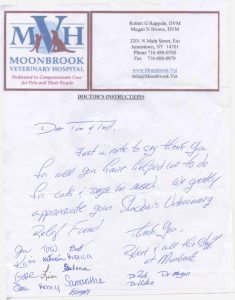 MVH
MOONBROOK
VETERINARY HOSPITAL
Dedicated to Compassionate Care
for Pets and Their People
Robert G Rappole, DVM
Megan N Brown, DVM
3201 N Main Street, Ext
Jamestown, NY 14701
Phone 716-488-0788
Fax 716-488-0979
www.Moonbrook.Vet
info@Moonbrook.Vet
DOCTOR'S INSTRUCTIONS
Dear Tim & Ted,
Just a note to say thank you
for all you have helped us to do
for cats & dogs in need. We greatly
appreciate your Veterinary
Relief Fund
Thank you,
Robert & all the staff
at Moonbrook
Samantha
Dr Megan